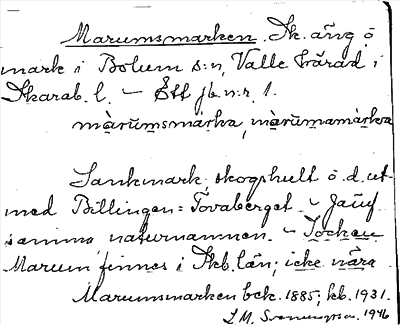 Marumsmarken. Sk. äng o
mark i Bolum s:n, Valle härad i
Skarab. l. – Ett jb. n:r 1.
màrumsmárka, màrumamàrka
Sankmark, skogshult o. d. ut-
med Billingen = Tovaberget. – Jämf
samma naturnamnen. – Socken
Marum finnes i Skb. län; icke nära
Marumsmarken bek. 1885; kb. 1931.
L.M. Svenungsson. 1946